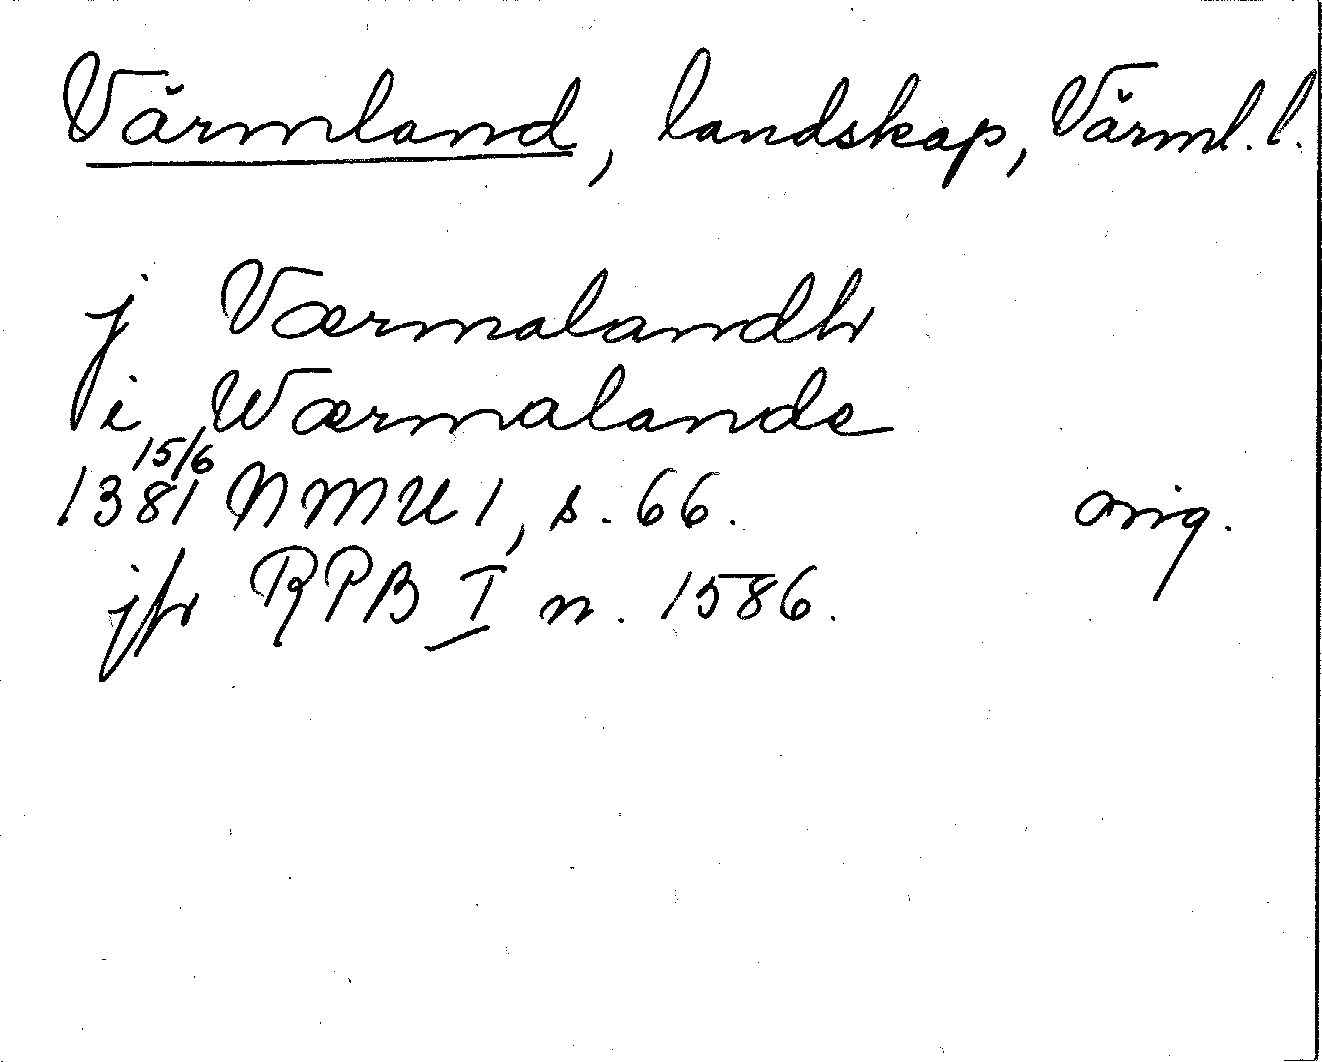 Värmland, landskap, Värml. l.
j Værmalandh
i Wærmalande
15/6
1381 NMU 1, s. 66. orig.
jfr RPB I n. 1586.